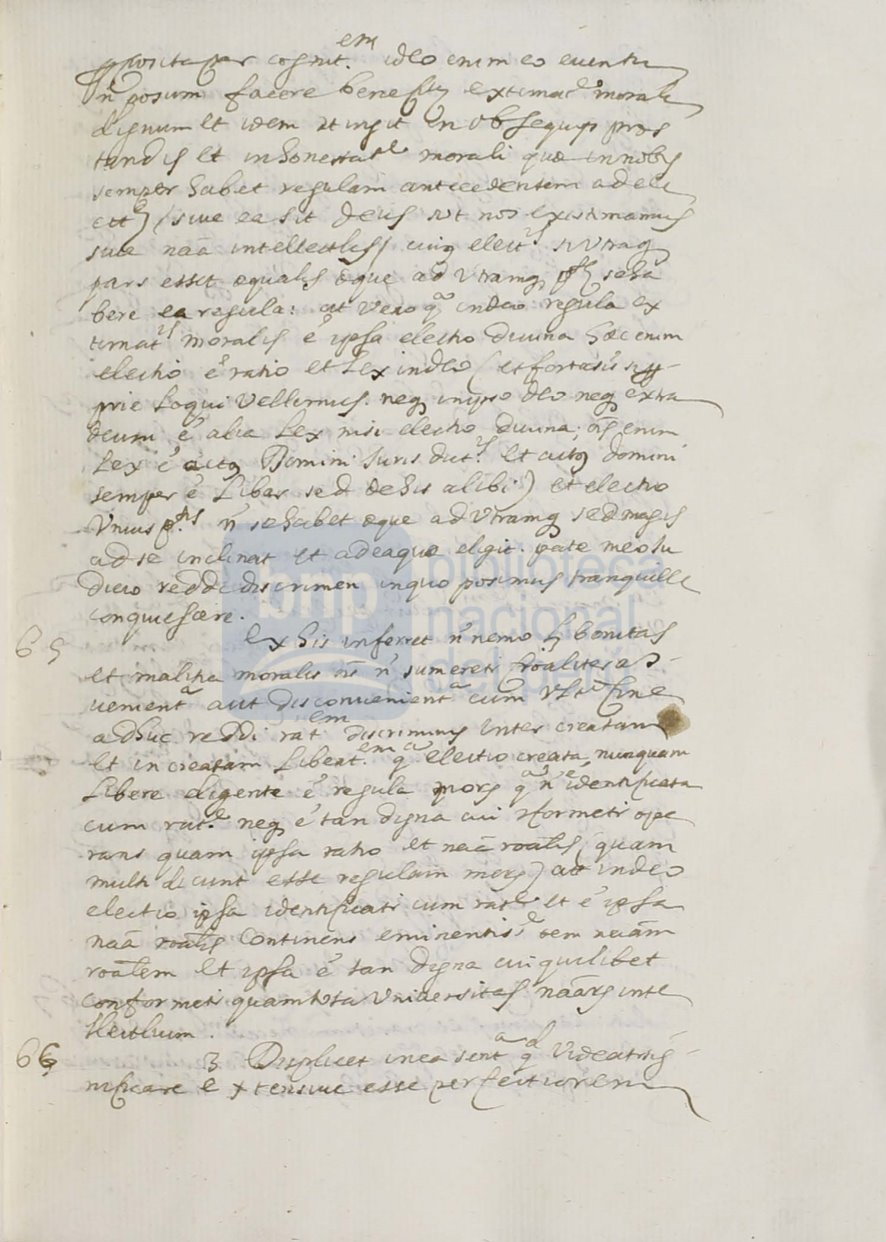 cognit.em ideo enim eo euentu
n̄ posum facere extimat.e morali
dignum et idem in obsequijs pręs
tandis et in honestat.e morali quæ in nobis
semper habet regulam antecedentem ad ele
ctē) (siue ea sit deus ut nos existimamus
siue naā intellectus) cuiq elect.s si utraq
pars esset æqualis æque ad utramq se ha
bere ea regula: at vero q.a in deo regula ex
timat.s moralis ē ipsa electio diuina hæc enim
electio ē ratio et Lex in deo (et fortasis si pp-
prie Loqui Vellimus neq in ipso deo neq extra
deum ē alia Lex nisi electio diuina; oīs enim
Lex ē actq Domini Jurisdict.s et actq domini
semper ē Liber sed de his alibi) et electio
Vnius p.tis n̄ se habet æque ad Vtramq sed magis
ad se inclinat et ad ea quæ eligit. pate meo Ju
dicio reddi discrimen in quo posimus tranquille
conquiescere.
65 Ex his inferret n̄ nemo bonitas
et malitia moralis n̄ sumeret
uenient.a aut disconuenient.a cum fine
adhuc reddi rat.em discriminis inter creatam
et increatam Libert.em q.a electio creata nunquam
Libere eligente ē regula moris q.a n̄ ē identificata
cum rat.e neq ē tan digna cui conformeti ope
rans quam ipsa ratio et naā roalis (quam
multi dicunt esse regulam moris) at in deo
electio ipsa identificati cum rat.e et ē ipsa
naā roalis continens eminentis.e oem naām
roalem et ipsa ē tan digna cui quilibet
conformeti quam tota Vniuersitas naārs inte
llectiuum.
66 3 Displicet in ea sent.a q.d Videatr sig-
nificare extensiue esse perfectiorem